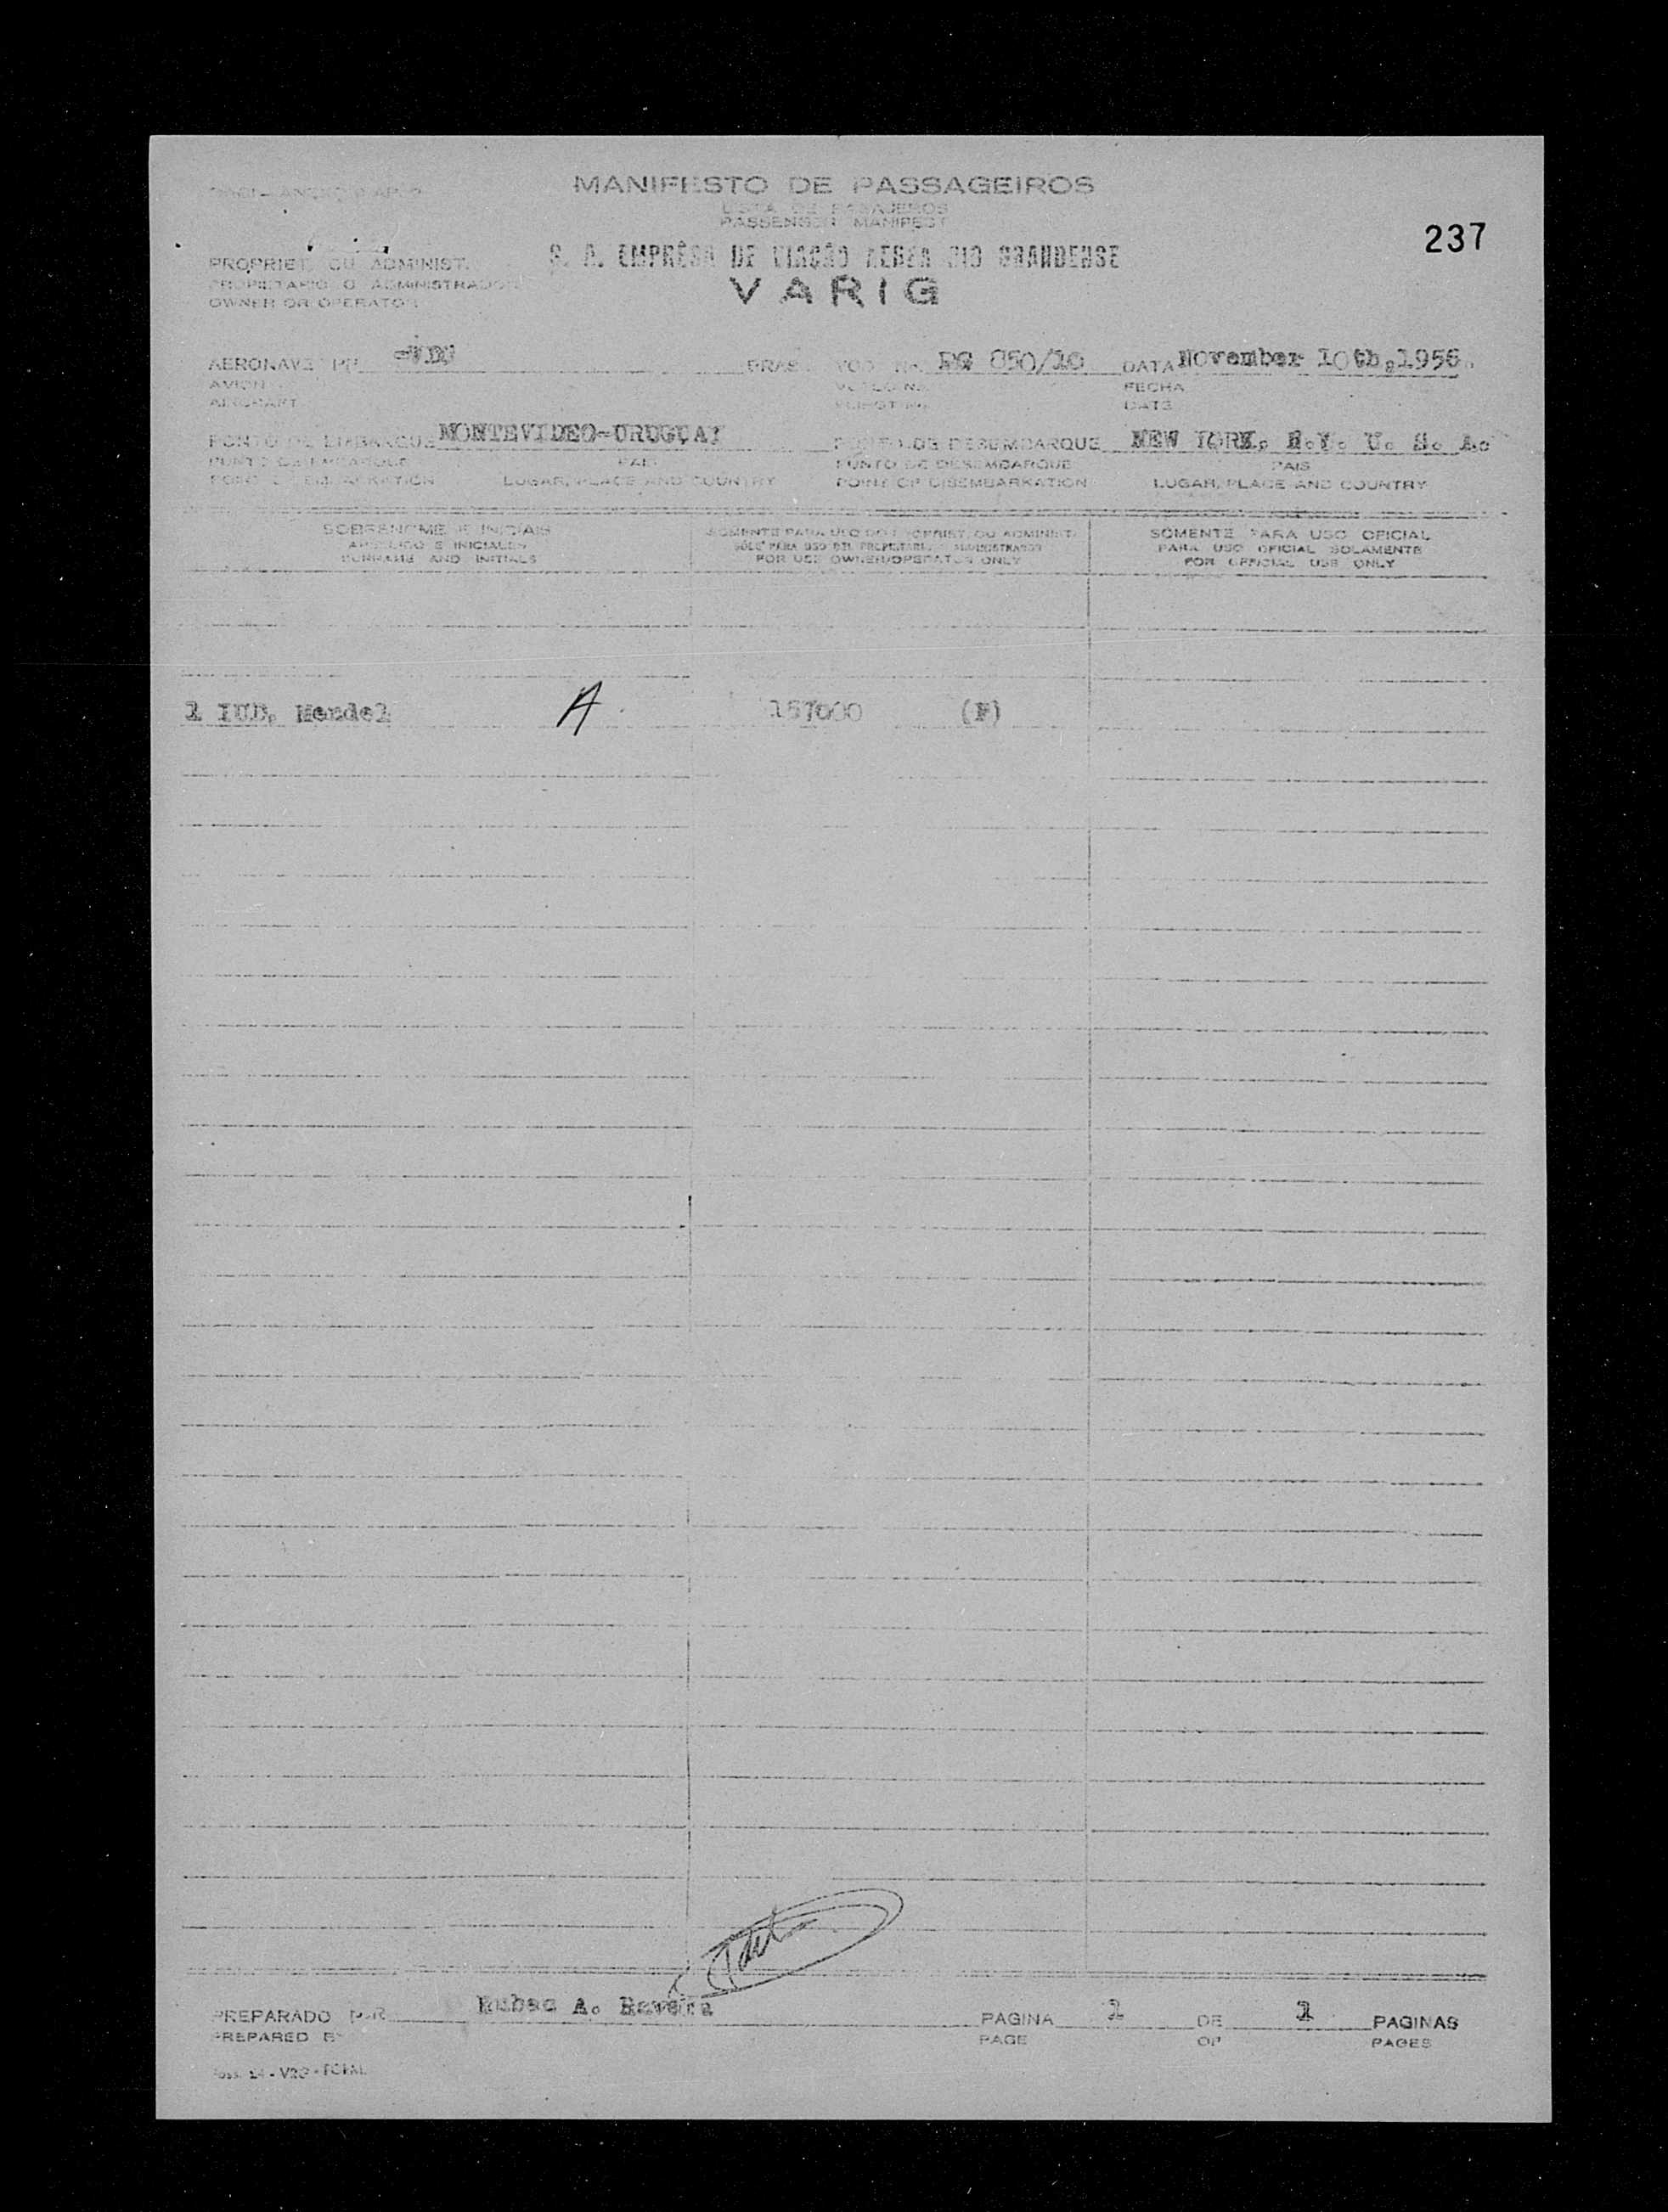 MANIFESTO DE PASSAGEIROS
LISTA DE PASAJEROS
PASSENGER MANIFEST
237
PROPRIET. OU ADMINIST. S. A. EMPRÊSA DE VIAÇÃO AEREA RIO GRANDENSE
PROPIETARIO O ADMINISTRADOR
OWNER OR OPERATOR
VARIG
AERONAVE PP BRAS. VOO No. RG 850/10 DATA November 10th,1956.
AVION VUELO No. FECHA
AIRCRAFT FLIGHT No. DATE
PONTO DE EMBARQUE MONTEVIDEO-URUGUAI PONTO DE DESEMBARQUE NEW YORK, N.Y. U. S. A.
PUNTO DE EMBARQUE PAIS PUNTO DE DESEMBARQUE PAIS
POINT OF EMBARKATION LUGAR, PLACE AND COUNTRY POINT OF DISEMBARKATION LUGAR, PLACE AND COUNTRY
SOBRENOME E INICIAIS SOMENTE PARA USO DO PROPRIET. OU ADMINIST. SOMENTE PARA USO OFICIAL
APELLIDO E INICIALES SÓLO PARA USO DEL PROPIETARIO ADMINISTRADOR PARA USO OFICIAL SOLAMENTE
SURNAME AND INITIALS FOR USE OWNER/OPERATOR ONLY FOR OFFICIAL USE ONLY
1 Mendel A 157000 (F)
PREPARADO POR Ruben A. PAGINA 1 DE 1 PAGINAS
PREPARED BY PAGE OF PAGES